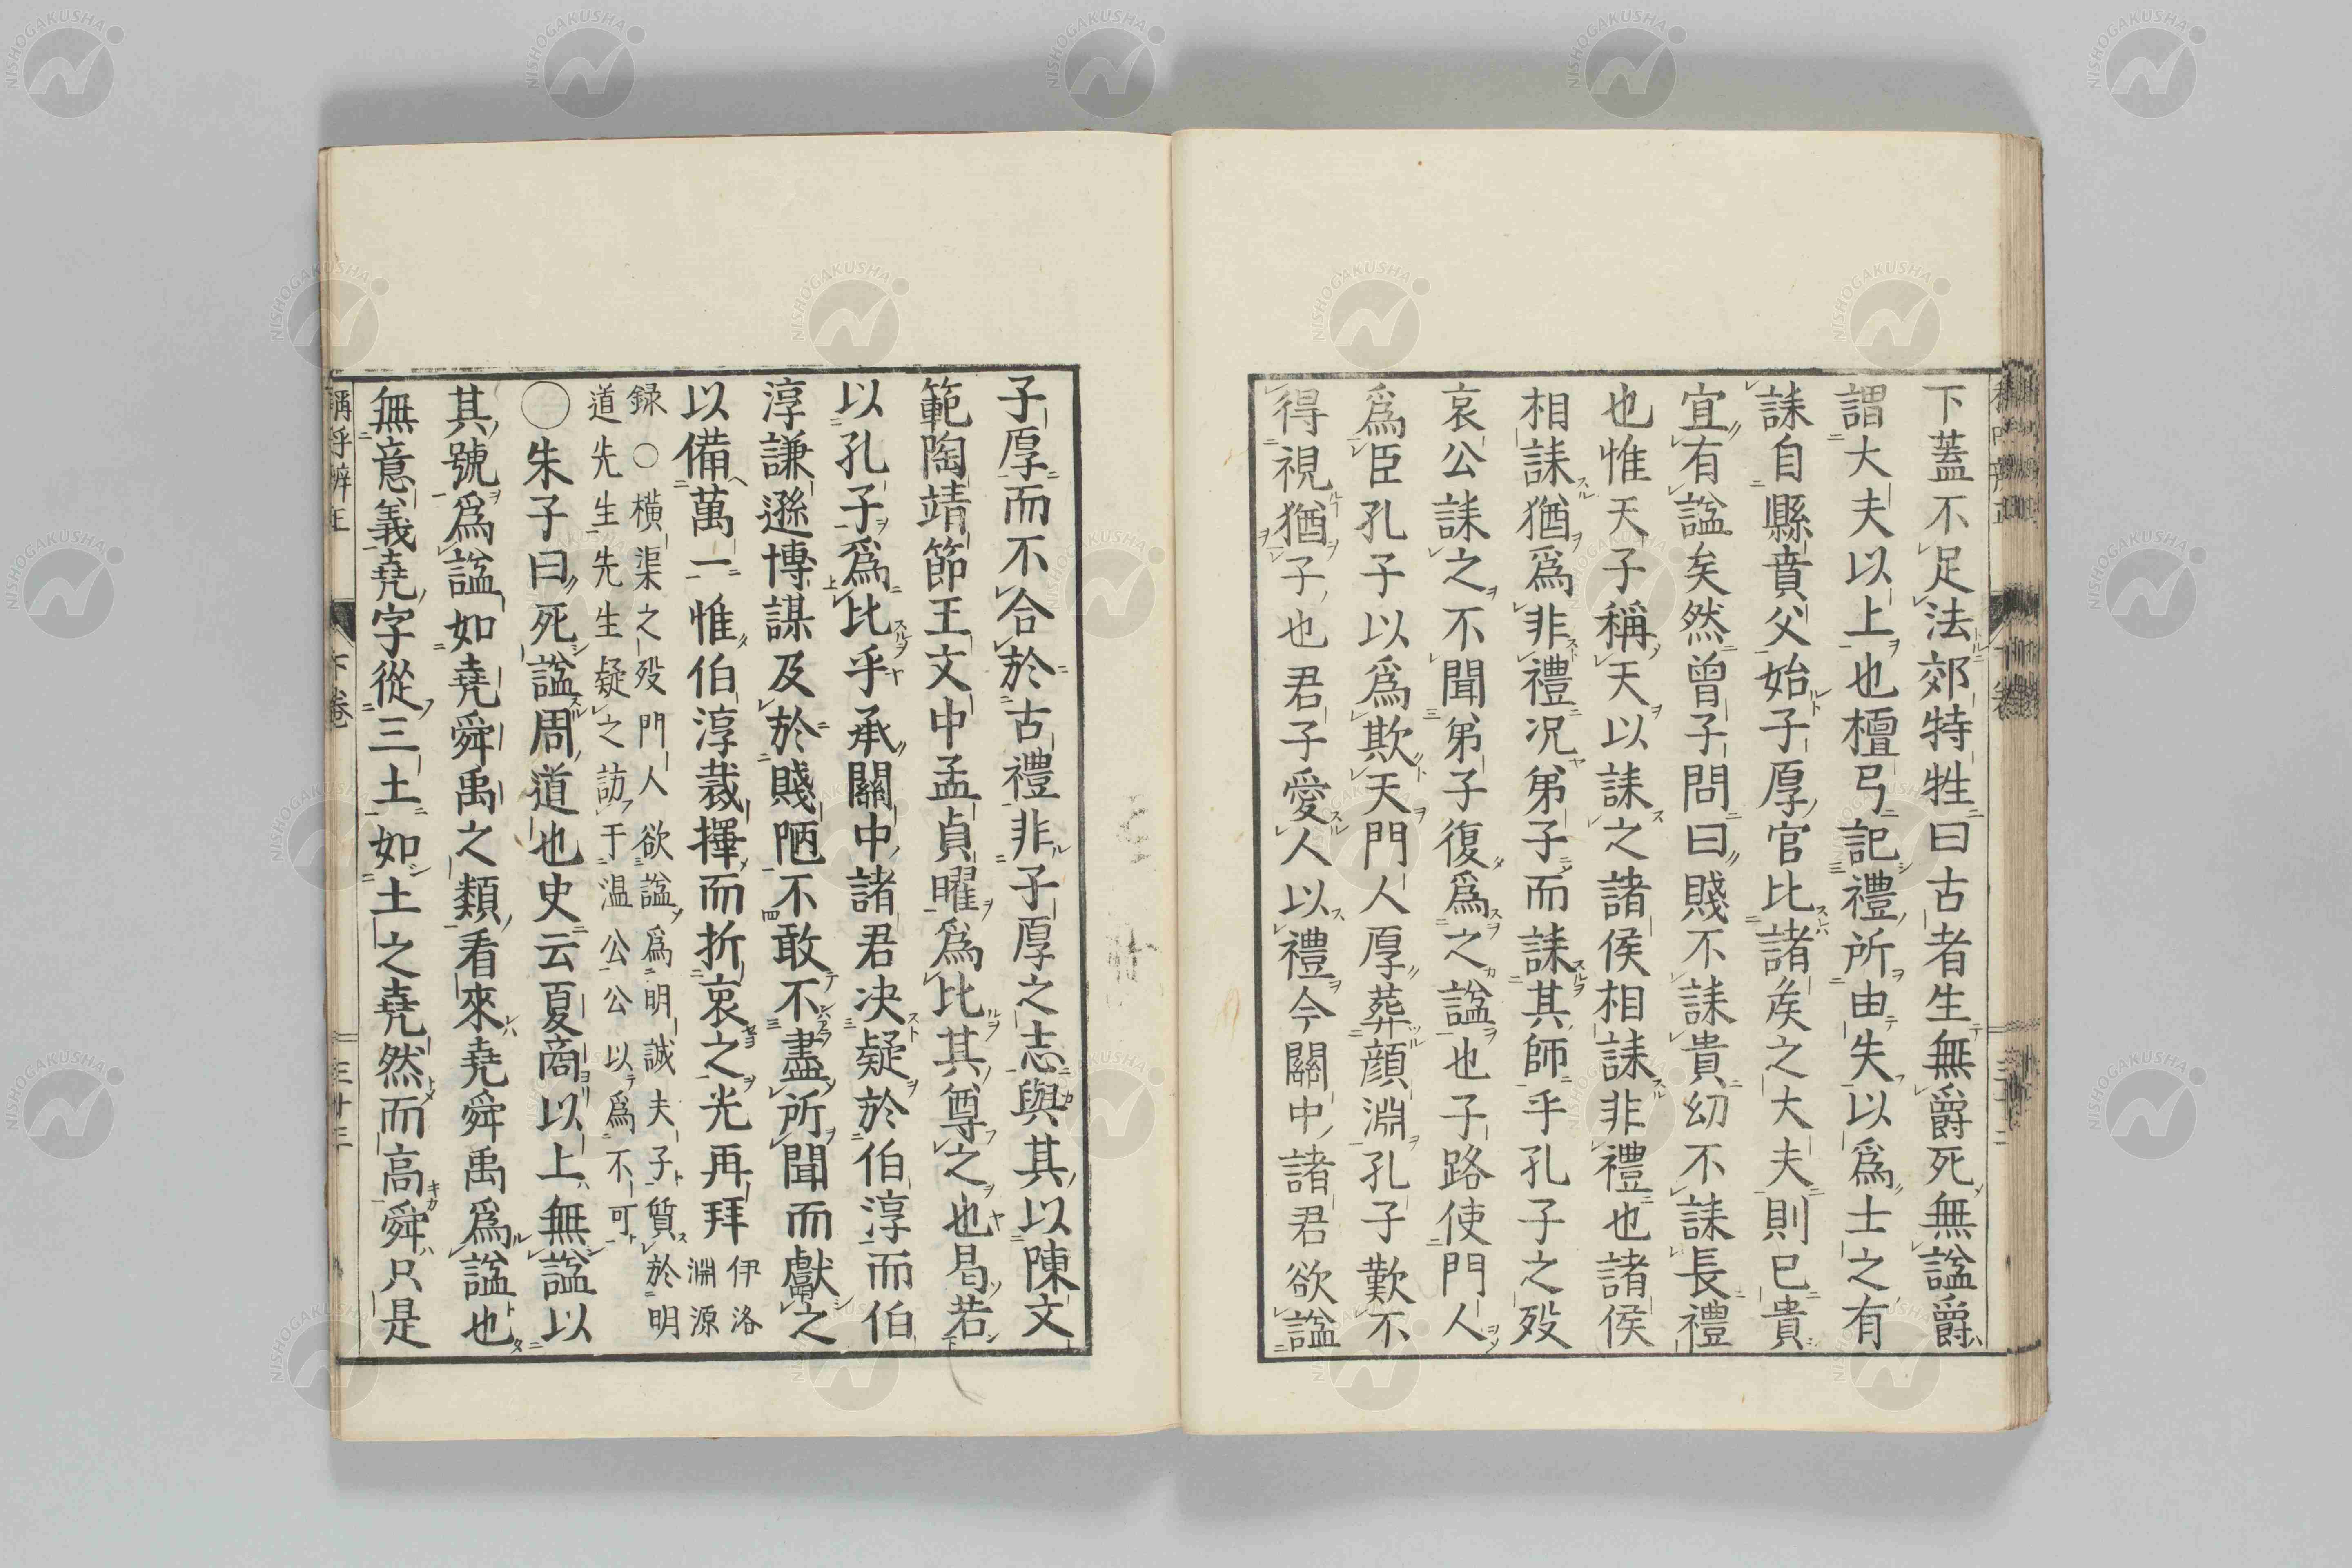 下蓋不足法郊特牲曰古者生無爵死無謚爵
謂大夫以上也檀弓記禮所由失以爲士之有
誄自縣賁父始子厚官比諸侯之大夫則已貴
宜有謚矣然曾子問曰賤不誄貴幼不誄長禮
也惟天子稱天以誄之諸侯相誄非禮也諸侯
相誄猶爲非禮况弟子而誄其師乎孔子之歿
哀公誄之不聞弟子復爲之謚也子路使門人
爲臣孔子以爲欺天門人厚葬顔淵孔子歎不
得視猶子也君子愛人以禮今關中諸君欲謚
子厚而不合於古禮非子厚之志與其以陳文
範陶靖節王文中孟貞曜爲比其尊之也曷若
以孔子爲比乎承關中諸君决疑於伯淳而伯
淳謙遜博謀及於賤陋不敢不盡所聞而獻之
以備萬一惟伯淳裁擇而折衷之光再拜 伊洛淵源
録○横渠之歿門人欲謚爲明誠夫子質於明
道先生先生疑之訪于温公公以爲不可
○朱子曰死謚周道也史云夏商以上無謚以
其號爲謚如堯舜禹之類看來堯舜禹爲謚也
無意義堯字從三土如土之堯然而高舜只是
稱呼辨正 下卷 三十三